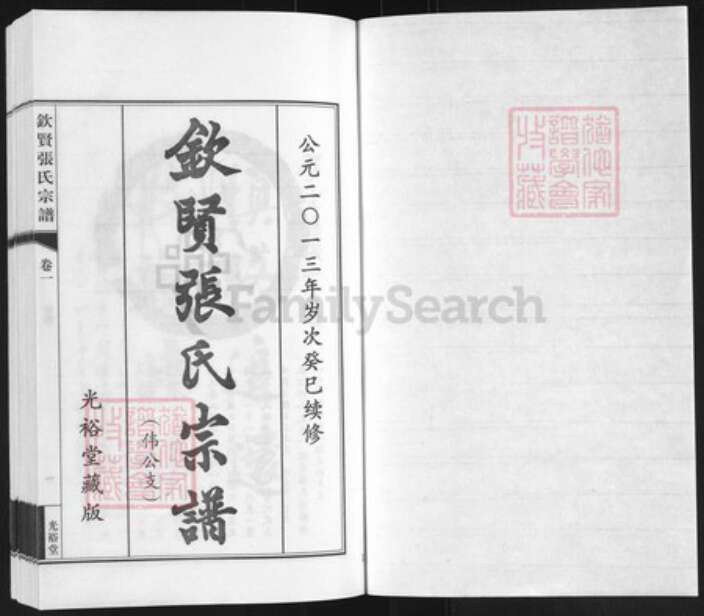 公元二〇一三年岁次癸巳续修
欽賢張氏宗譜
（伟公支）
光裕堂藏版
欽賢張氏宗譜
卷一
光裕堂
FamilySearch